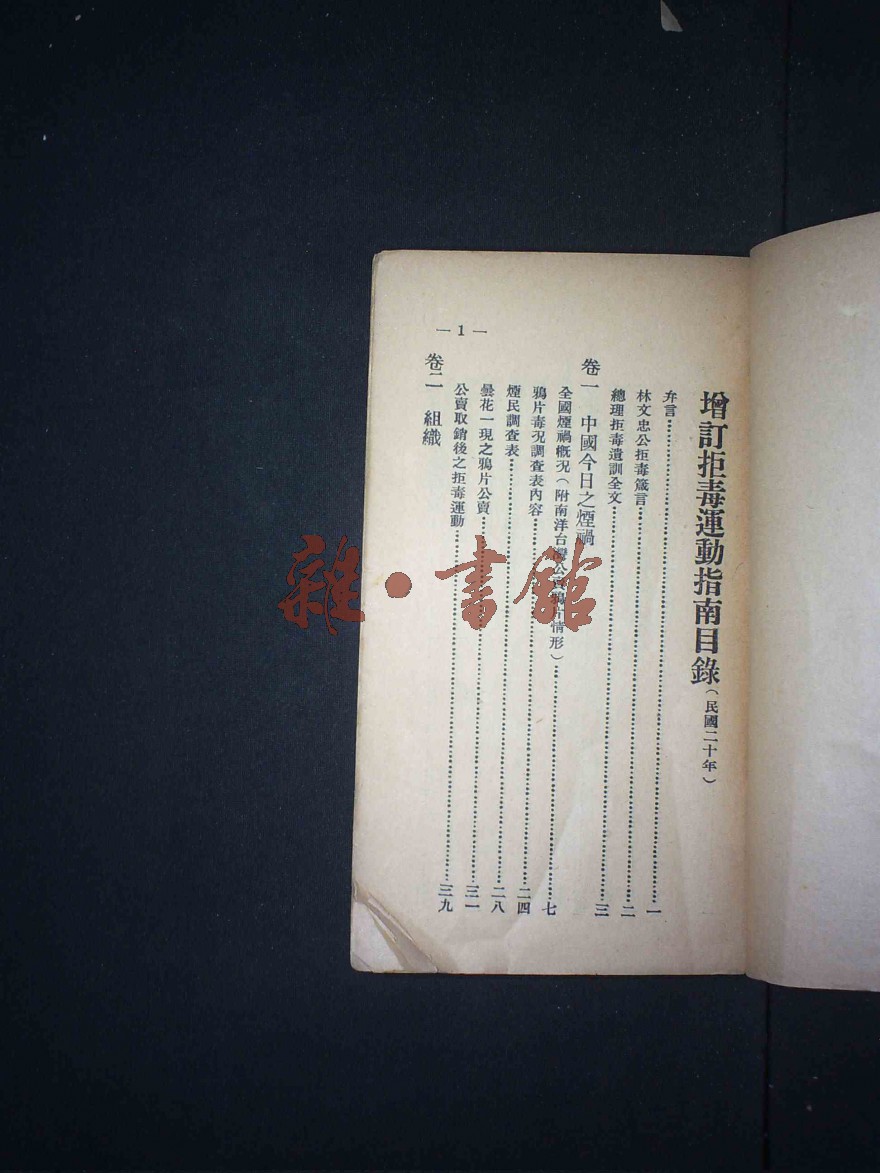 增訂拒毒運動指南目錄(民國二十年)
弁言……一
林文忠公拒毒箴言……二
總理拒毒遺訓全文……三
卷一 中國今日之煙禍
全國煙禍概况(附南洋台灣公賣鴉片情形)……七
鴉片毒况調查表內容……二四
煙民調查表……二八
曇花一現之鴉片公賣……三一
公賣取銷後之拒毒運動……三九
卷二 組織
—1—
雜·書館